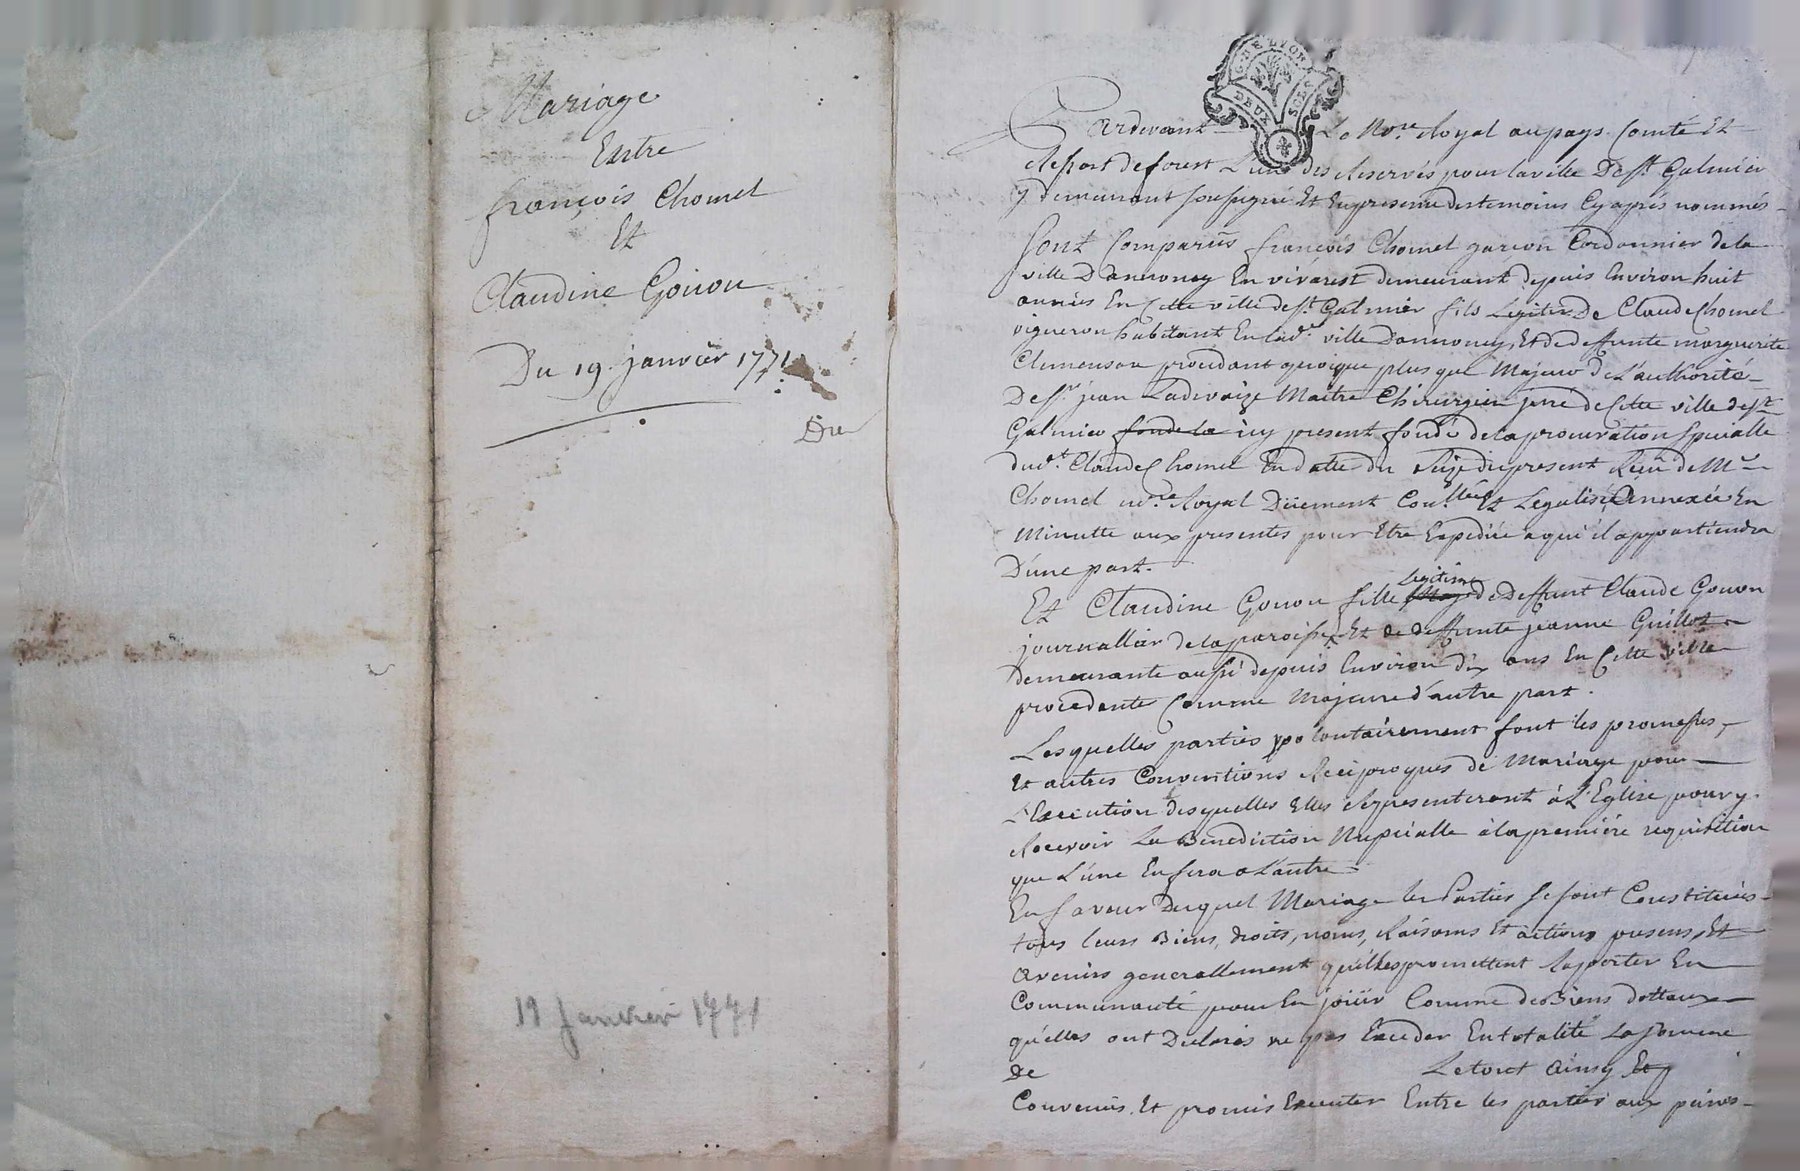 Mariage
Entre
françois Chomel
Et
Claudine Gouon
Du 19. janvier 1771
Du
19 Janvier 1771
GNE LYON
DEUX SOLS
Pardevant Le No.re Royal au pays Comté Et
Ressort de forest L'un des Reservés pour la ville De St. Galmier
y demeurant soussigné Et En presence des temoins Cy après nommés
Sont Comparus françois Chomel garçon Cordonnier de la
ville D'annonay En vivarest demeurant depuis Environ huit
années En Cette ville de St. Galmier fils Legitime De Claude Chomel
vigneron habitant En lad.e ville D'annonay, Et de deffunte marguerite
Clemenson procedant quoique plus que Majeur de L'authorité
De Sr. jean Ladevaize Maitre Chirurgien juré de Cette ville de St.
Galmier fondé la icy present fondé de la procuration Specialle
dud.t Claude Chomel En datte du Seize du present Reçu De M.e
Chomel no.re Royal Düement Con.llée Et Legalisée, annexée En
Minutte aux presentes pour Etre Expediée a qui il appartiendra
D'une part.
Legitime
Et Claudine Gouon fille de Deffunt Claude Gouon
journallier de la paroisse Et de deffunte jeanne Guillot
demeurante aussi depuis Environ dix ans En Cette ville
procedante Comme Majeure d'autre part.
Lesquelles parties volontairement font les promesses,
Et autres Conventions Reciproques de Mariage pour
L'Execution desquelles Elles se presenteront à L'Eglise pour y
Recevoir La Benediction Nupcialle à la premiére requisition
que L'une En fera a L'autre
En faveur Duquel Mariage les Parties se sont Constituées
tous leurs Biens, droits, noms, Raisons Et actions presens, Et
avenirs generallement qu'elles promettent Rapporter En
Communauté pour En joüir Comme de Biens dottaux
qu'elles ont Declarés ne pas Exceder En totalité La somme
De Le tout Ainsy Et
Convenus. Et promis Executer Entre les parties aux peines